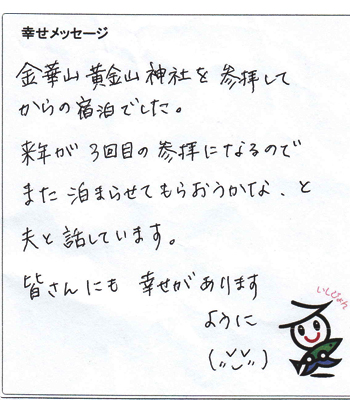 幸せメッセージ
金華山黄金山神社を参拝して
からの宿泊でした。
来年が3回目の参拝になるので
また泊まらせてもらおうかな、と
夫と話しています。
皆さんにも 幸せがあります
ように
いしぴょん